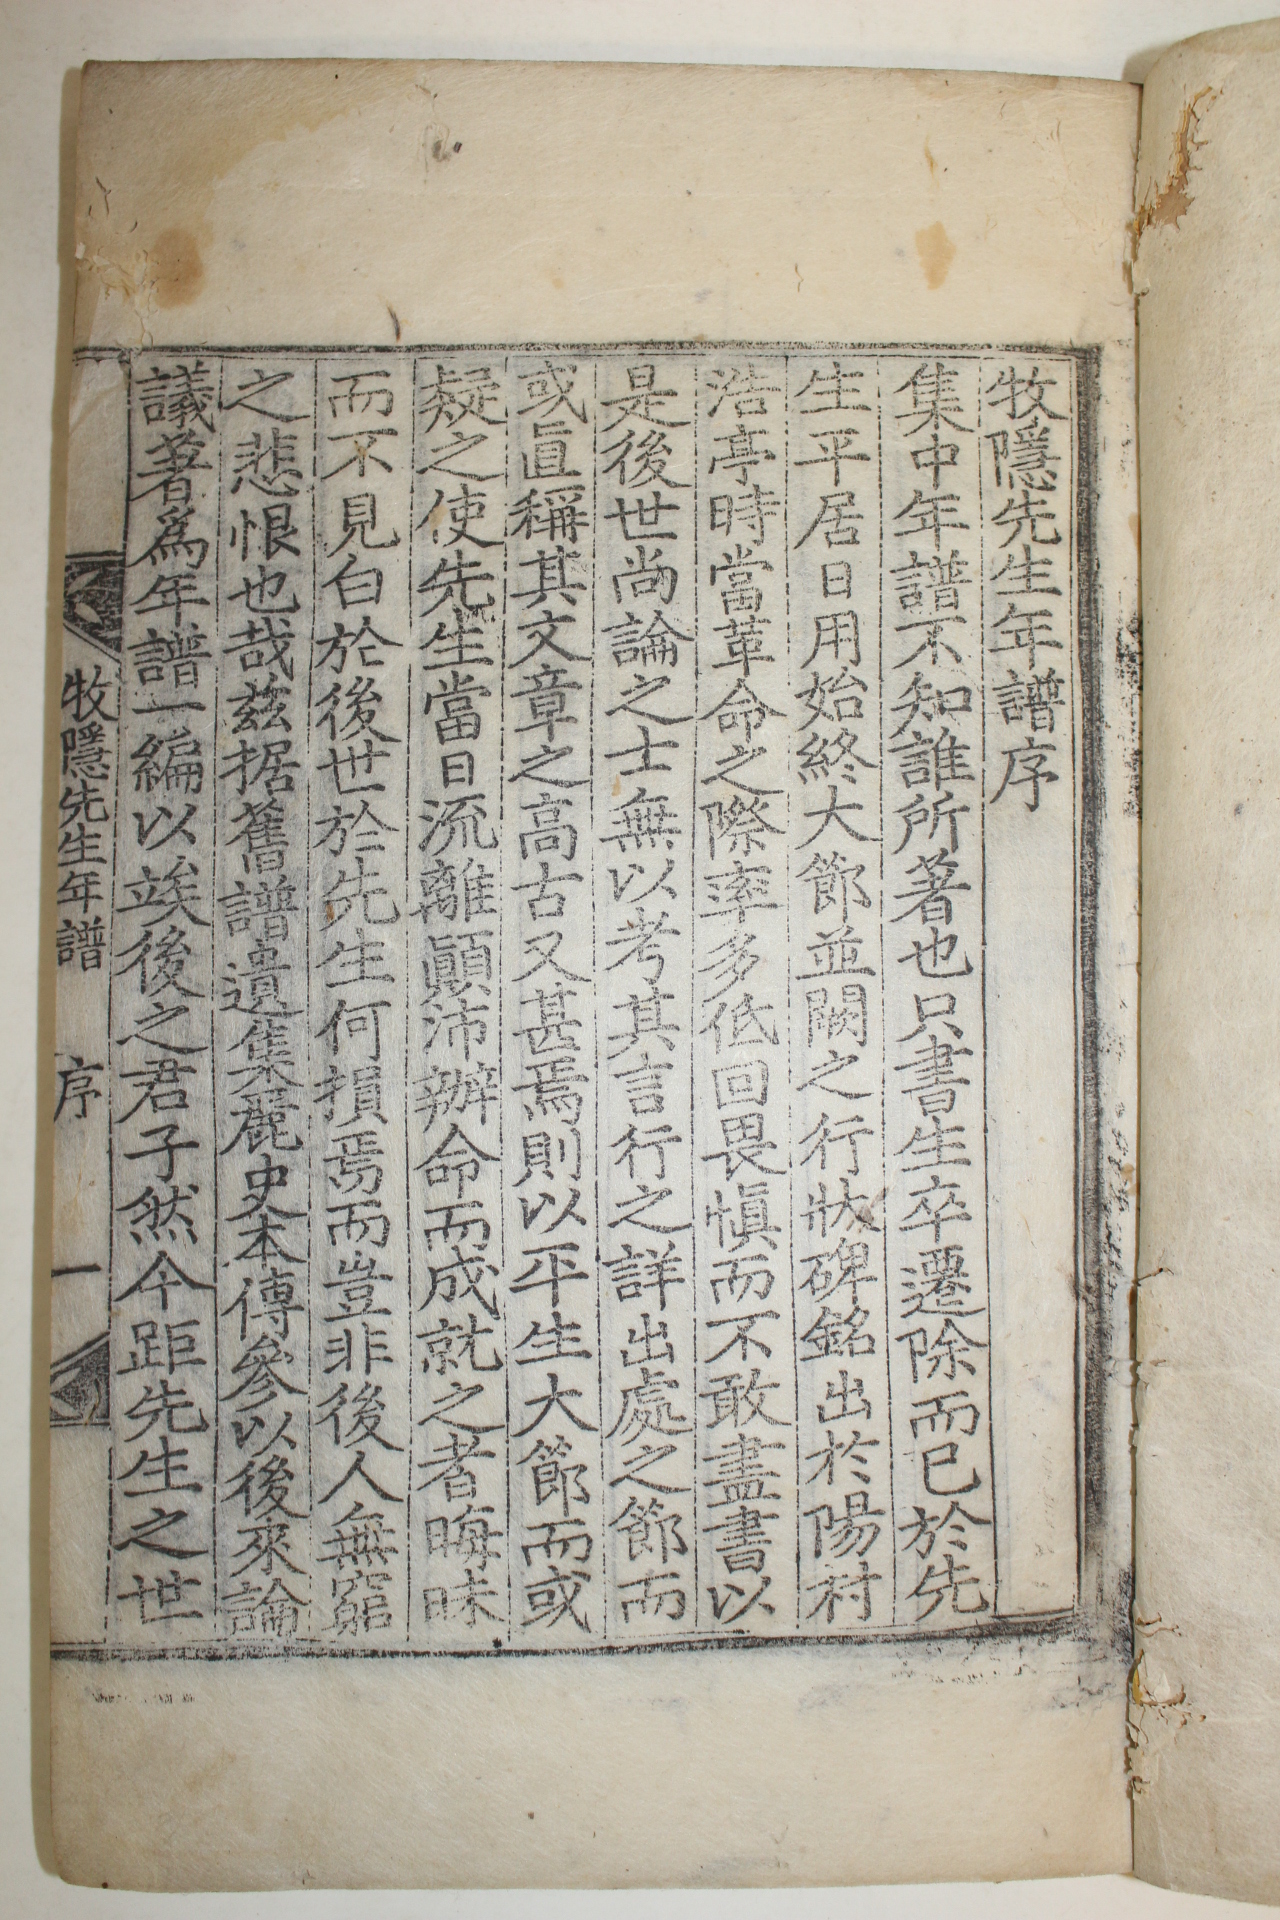 牧隱先生年譜序
集中年譜不知誰所著也只書生卒遷除而已於先
生平居日用始終大節並闕之行狀碑銘出於陽村
浩亭時當革命之際率多低回畏愼而不敢盡書以
是後世尙論之士無以考其言行之詳出處之節而
或眞稱其文章之高古又甚焉則以平生大節而或
疑之使先生當日流離顚沛辦命而成就之者晦昧
而不見白於後世於先生何損焉而豈非後人無窮
之悲恨也哉玆据舊譜遺集麗史本傳參以後來論
議著爲年譜一編以竢後之君子然今距先生之世
牧隱先生年譜 序 一